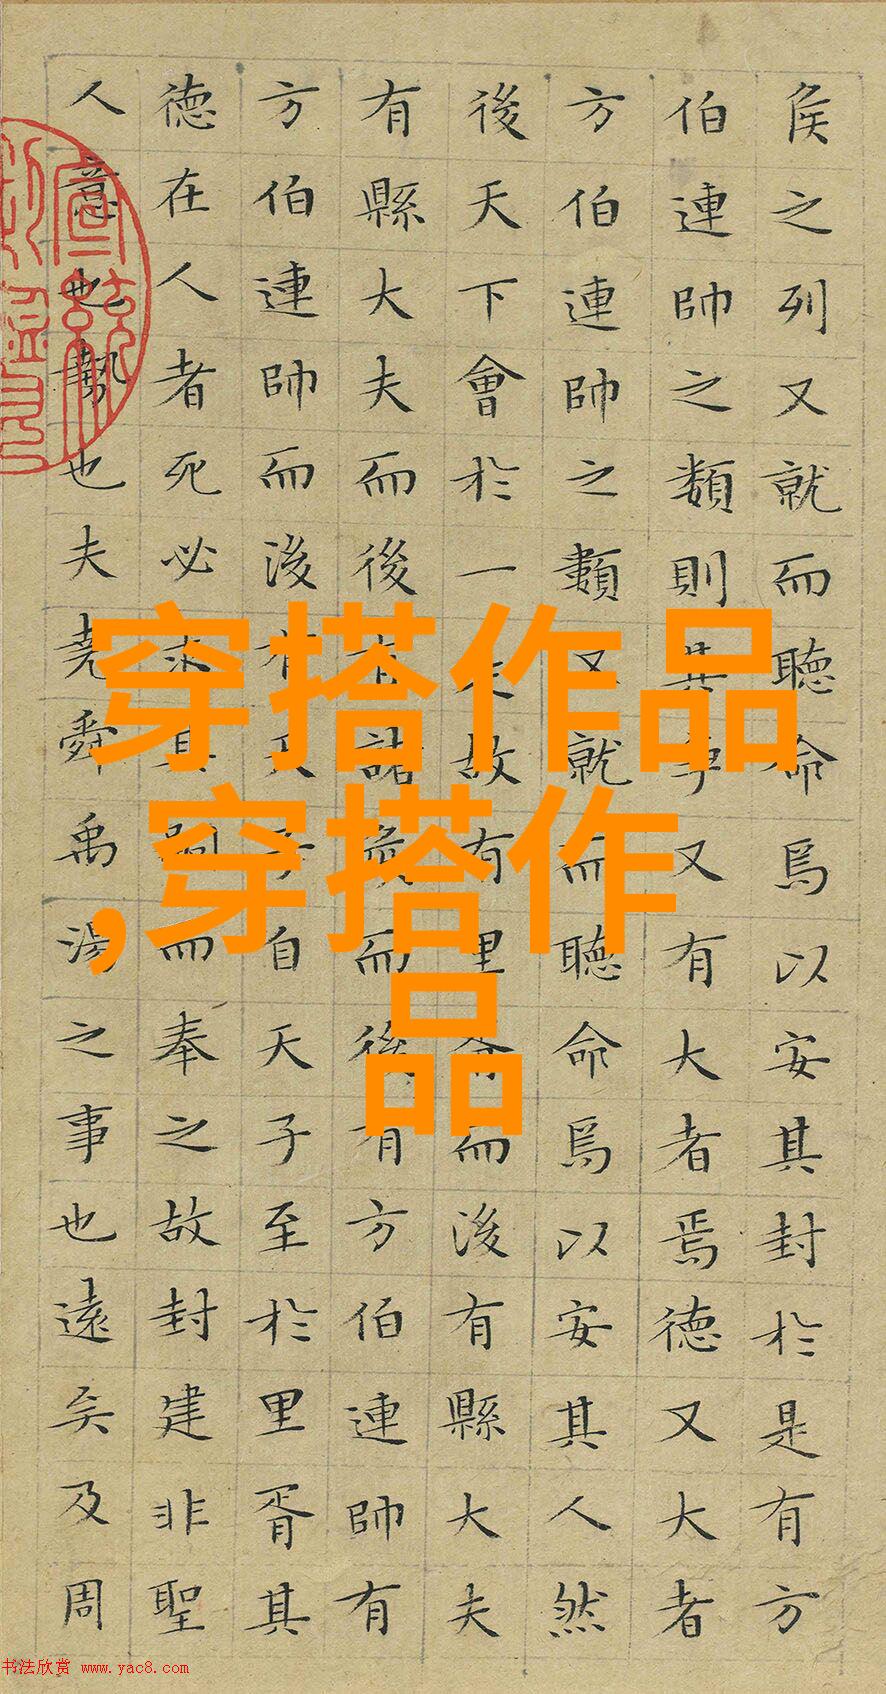 侯之列又就而聽命焉以安其封於是有方
伯連帥之類則其爭又有大者焉德又大者
方伯連帥之類又就而聽命焉以安其人然
後天下會於一是故有里胥而後有縣大夫
有縣大夫而後有諸侯而後有方伯連帥有
方伯連帥而後有天子自天子至於里胥其
德在人者死必求其嗣而奉之故封建非聖
人意也勢也夫堯舜禹湯之事也遠矣及周
穿搭作品
,穿搭作
品
书法欣赏 www.yac8.com